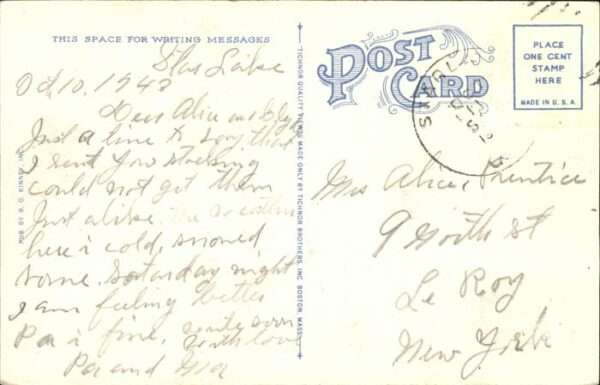 THIS SPACE FOR WRITING MESSAGES
Oct 10, 1942
Dear Alice and
Just a line to say that
I sent you stocking
could not get them
Just alike. the
here is cold, snowed
some. Saturday night
I am feeling better
Pa is fine, write soon
with love
Pa and Ma
PUB. BY W. G. KINNEY
TICHNOR QUALITY VIEWS MADE ONLY BY TICHNOR BROTHERS, INC. BOSTON, MASS.
POST CARD
PLACE
ONE CENT
STAMP
HERE
MADE IN U.S.A.
Mrs Alice, Prentice
9 North St
Le Roy
New York